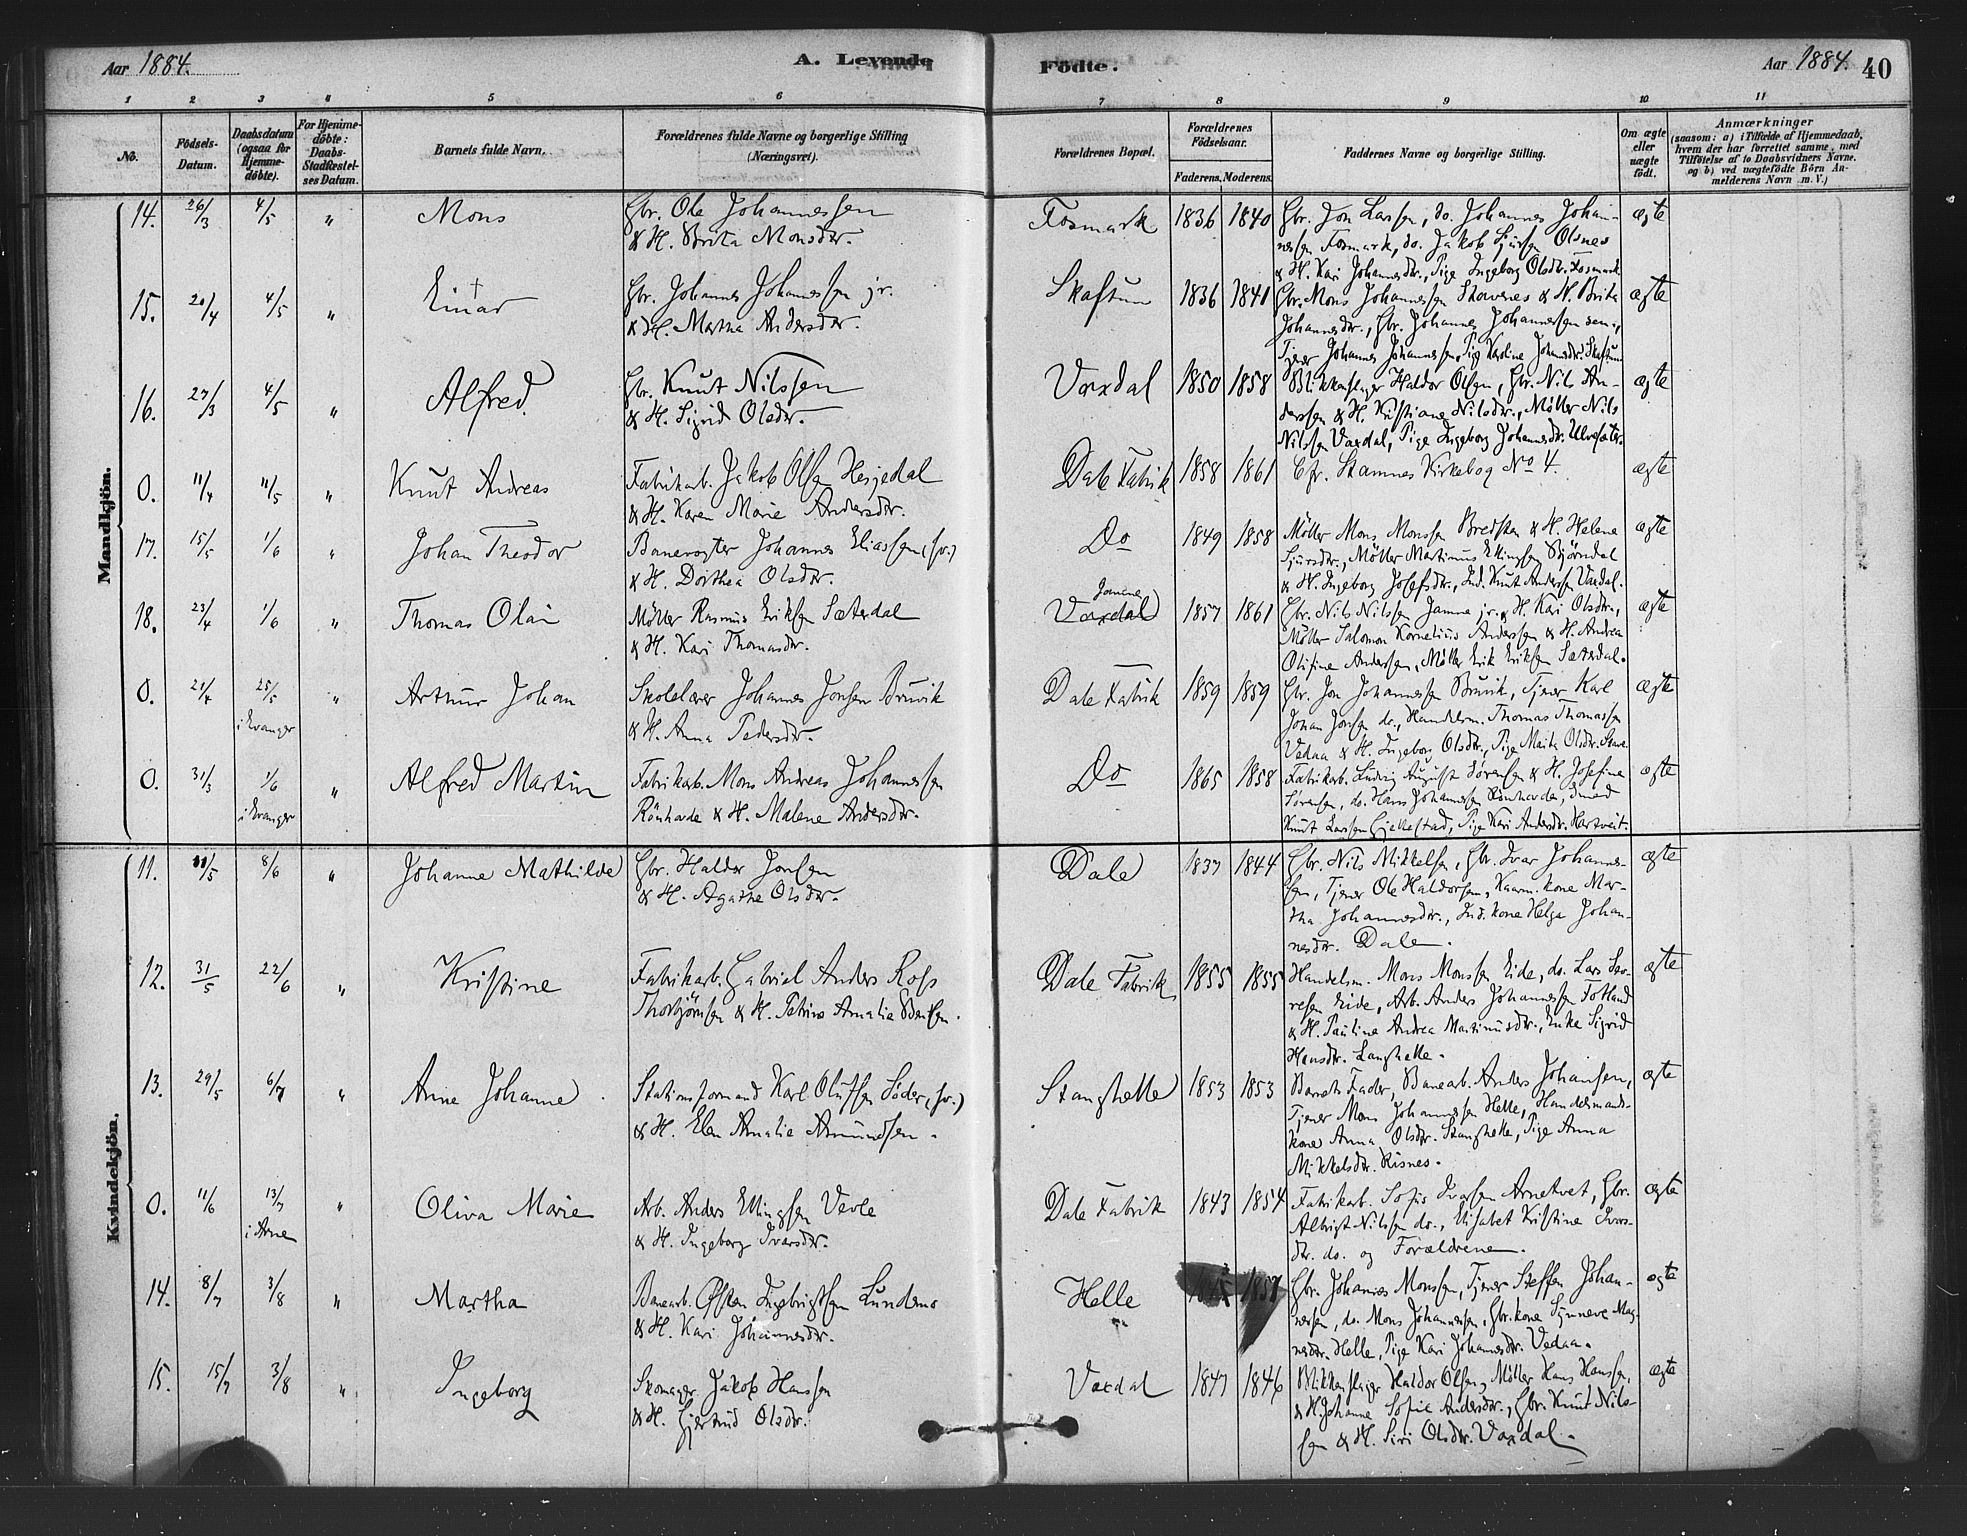 Aar 1884.
A. Levende
Födte.
Aar 1884. 40
1 2 3 4 5 6 7 8 9 10 11
No.
Födsels-
Datum.
Daabsdatum
(ogsaa for
Hjemme-
döbte).
For Hjemme-
döbte:
Daabs-
Stadfæstel-
ses Datum.
Barnets fulde Navn.
Forældrenes fulde Navne og borgerlige Stilling
(Næringsvei).
Forældrenes Bopæl.
Forældrenes
Födselsaar.
Faderens. Moderens.
Faddernes Navne og borgerlige Stilling.
Om ægte
eller
uægte
födt.
Anmærkninger
(saasom: a) i Tilfælde af Hjemmedaab,
hvem der har forrettet samme, med
Tilföielse af to Daabsvidners Navne,
og b) ved uægtefödte Börn An-
melderens Navn m. V.)
Mandkjön.
14. 26/3 4/5 " Mons
Gbr. Ole Johannessen
& H. Brita Monsdtr.
Fosmark 1836 1840
Gbr. Jon Larsen, do. Johannes Johan-
nessen Fosmark, do. Jakob Sjursen Olsnes
& H. Kari Johannesdtr., Pige Ingeborg Olsdtr. Fosmark
ægte
15. 20/4 4/5 " Einar
Gbr. Johannes Johannessen jr.
& H. Martha Andersdtr.
Skaftun 1836 1841
Gbr. Mons Johannessen Stavenes & H. Brita
Johannesdtr., Gbr. Johannes Johannessen sen.,
Tjener Johannes Johannessen, Pige Karoline Johannsdtr. Skaftun
ægte
16. 27/3 4/5 " Alfred.
Gbr. Knut Nilssen
& H. Sigrid Olsdtr.
Vaxdal 1850 1858
Blikkenslager Haldor Olsen, Gbr. Nils An-
derssen & H. Kristiane Nilsdtr., Møller Nils
Nilssen Vaxdal, Pige Ingeborg Johannesdtr. Ulvesæter.
ægte
0. 11/4 11/5 " Knut Andreas
Fabrikarb. Jakob Olsen Hesjedal
& H. Karen Marie Andersdtr.
Dale Fabrik 1858 1861
Cfr. Stamnes Kirkebog No 4.
ægte
17. 15/5 1/6 " Johan Theodor
Banevogter Johannes Eliassen (sv.)
& H. Dorthea Olsdtr.
Do 1849 1858
Møller Mons Monssen Bredsten & H. Helene
Sjursdtr., Møller Martinus Ellingsen Stjørndal
& H. Ingeborg Josefsdtr., Ind. Knut Andersen Vaxdal.
ægte
18. 23/4 1/6 " Thomas Olai
Møller Rasmus Eriksen Sæterdal
& H. Kari Thomasdtr.
Jamne
Vaxdal 1857 1861
Gbr. Nils Nilssen Jamne jr. & H. Kari Olsdtr.,
Møller Salomon Kornelius Anderssen & H. Andrea
Olifine Andersen, Møller Erik Eriksen Sæterdal.
ægte
0. 21/4 25/5 " Arthur Johan
i Evanger
Skolelærer Johannes Jonsen Bruvik
& H. Anna Pedersdtr.
Dale Fabrik 1859 1859
Gbr. Jon Johannessen Bruvik, Tjener Karl
Johan Jonsen do., Handelsm. Thomas Thomassen
Vedaa & H. Ingeborg Olsdtr., Pige Marta Olsdtr. Stave.
ægte
0. 31/3 1/6 " Alfred Martin
i Evanger
Fabrikarb. Mons Andreas Johannessen
Rönhovde & H. Malene Andersdtr.
Do 1865 1858
Fabrikarb. Ludvig August Sørensen & H. Josefine
Sørensen, do. Hans Johannessen Rönhovde,
Knut Larssen Gjellestad, Pige Kari Andersdtr. Hartveit.
ægte
Kvindekjön.
11. 11/5 8/6 " Johanne Mathilde
Gbr. Haldor Jonsen
& H. Agathe Olsdtr.
Dale 1837 1844
Gbr. Nils Mikkelsen, Gbr. Ivar Johannes-
sen, Tjener Ole Haldorsen, Kaarm. kone Mar-
tha Johannesdtr., Ind. kone Helga Johan-
nesdtr. Dale.
ægte
12. 31/5 22/6 " Kristine
Fabrikarb. Gabriel Anders Ross
Thorbjörnsen & H. Petrine Amalie
Dale Fabrik 1855 1855
Handelsm. Mons Monssen Eide, do. Lars Sev-
resen Eide, Arb. Anders Johannessen Totland
& H. Pauline Andrea Martinusdtr., Enke Sigrid
Hansdtr. Langhelle.
ægte
13. 29/5 6/7 " Anne Johanne
Stationsformand Karl Olufsen Söder (sv.)
& H. Elen Amalie Amundsen.
Stanghelle 1853 1853
Barnets Fader, Banearb. Anders Johansen,
Tjener Mons Johannessen Helle, Handelsmands-
kone Anna Olsdtr. Stanghelle, Pige Anna
Mikkelsdtr. Risnes.
ægte
0. 11/6 13/7 " Oliva Marie
i Arne
Arb. Anders Ellingsen Vevle
& H. Ingeborg Ivarsdtr.
Dale Fabrik 1843 1854
Fabrikarb. Sofus Ivarsen Arnetvet, Gbr.
Albrigt Nilssen do., Elisabet Kristine Ivars-
dtr. do. og Forældrene.
ægte
14. 8/7 3/8 " Martha
Banearb. Østen Ingebrigtsen Lundemo
& H. Kari Johannesdtr.
Helle 1857
Gbr. Johannes Monssen, Tjener Steffen Johan-
nessen, do. Mons Johannessen, Gbr. kone Synneve Mag-
nesdtr. Helle, Pige Kari Johannesdtr. Vedaa.
ægte
15. 15/7 3/8 " Ingeborg
Skomager Jakob Hanssen
& H. Gjertrud Olsdtr.
Vaxdal 1847 1846
Blikkenslager Haldor Olsen, Møller Hans Hanssen,
& H. Johanne Sofie Andersdtr., Gbr. Knut Nils-
sen & H. Siri Olsdtr. Vaxdal.
ægte